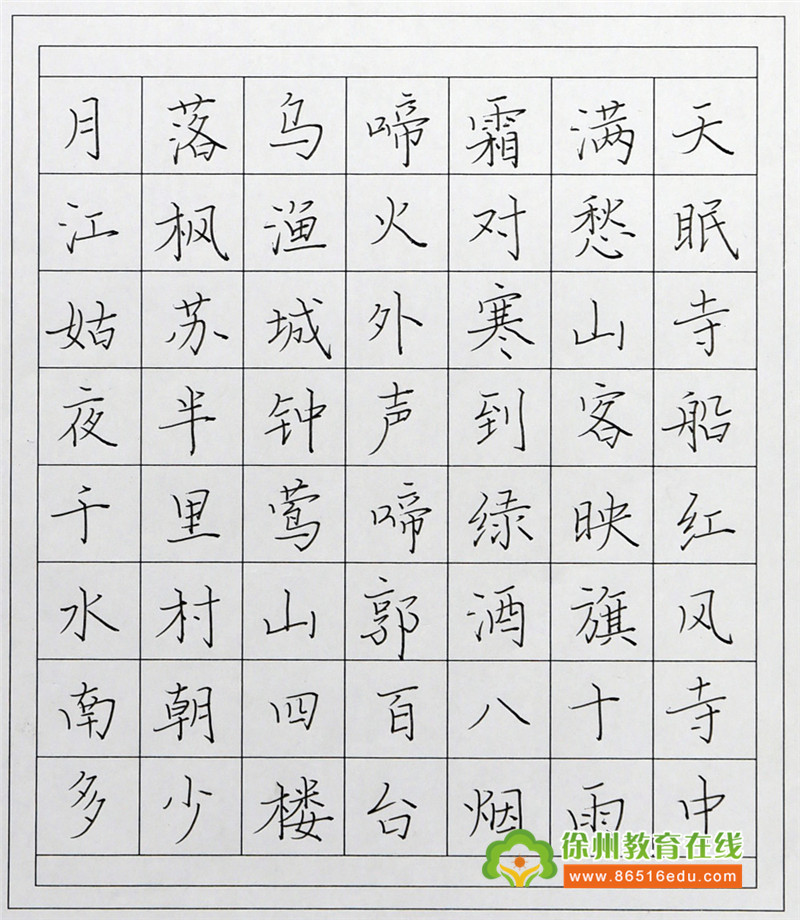 月落乌啼霜满天
江枫渔火对愁眠
姑苏城外寒山寺
夜半钟声到客船
千里莺啼绿映红
水村山郭酒旗风
南朝四百八十寺
多少楼台烟雨中
徐州教育在线
www.86516edu.com